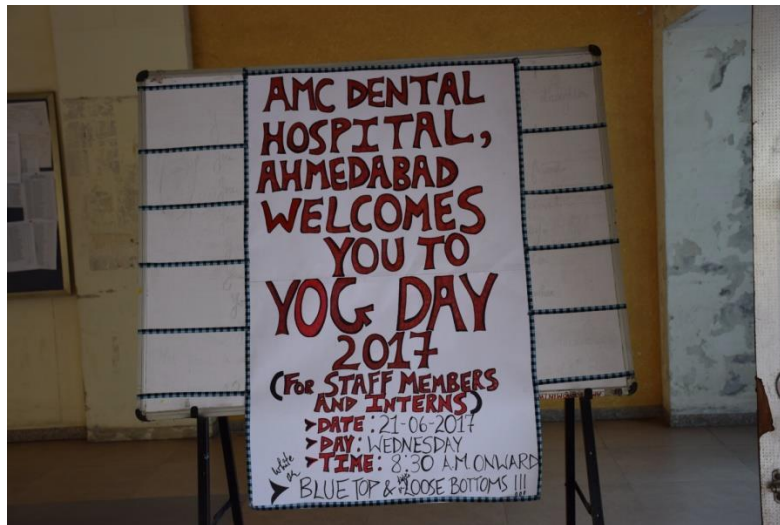 AMC DENTAL
HOSPITAL,
AHMEDABAD
WELCOMES
YOU TO
YOG DAY
2017
(FOR STAFF MEMBERS
AND INTERNS)
➤DATE: 21-06-2017
➤DAY: WEDNESDAY
➤TIME: 8:30 A.M. ONWARD
➤ white or BLUE TOP & LOOSE BOTTOMS !!!